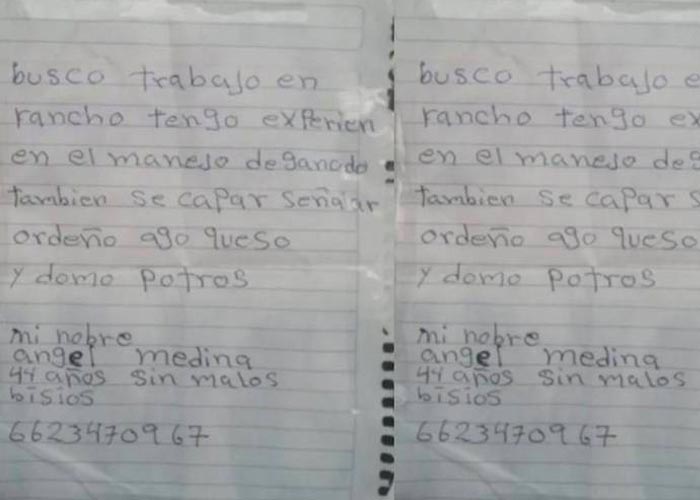 busco trabajo en
rancho tengo experien
en el manejo de ganado
tambien se capar señalar
ordeño ago queso
y domo potros
mi nobre
angel medina
44 años sin malos
bisios
6623470967
busco trabajo e
rancho tengo ex
en el manejo deg
tambien se capar s
ordeño ago queso
y domo potros
mi nobre
angel medina
44 años sin malos
bisios
6623470967